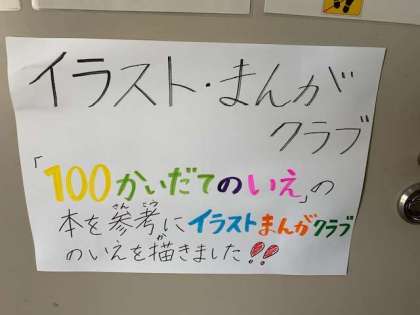 イラスト・まんが
クラブ
「100かいだてのいえ」の
本を参考にイラストまんがクラブ
さんこう
のいえを描きました!!
か